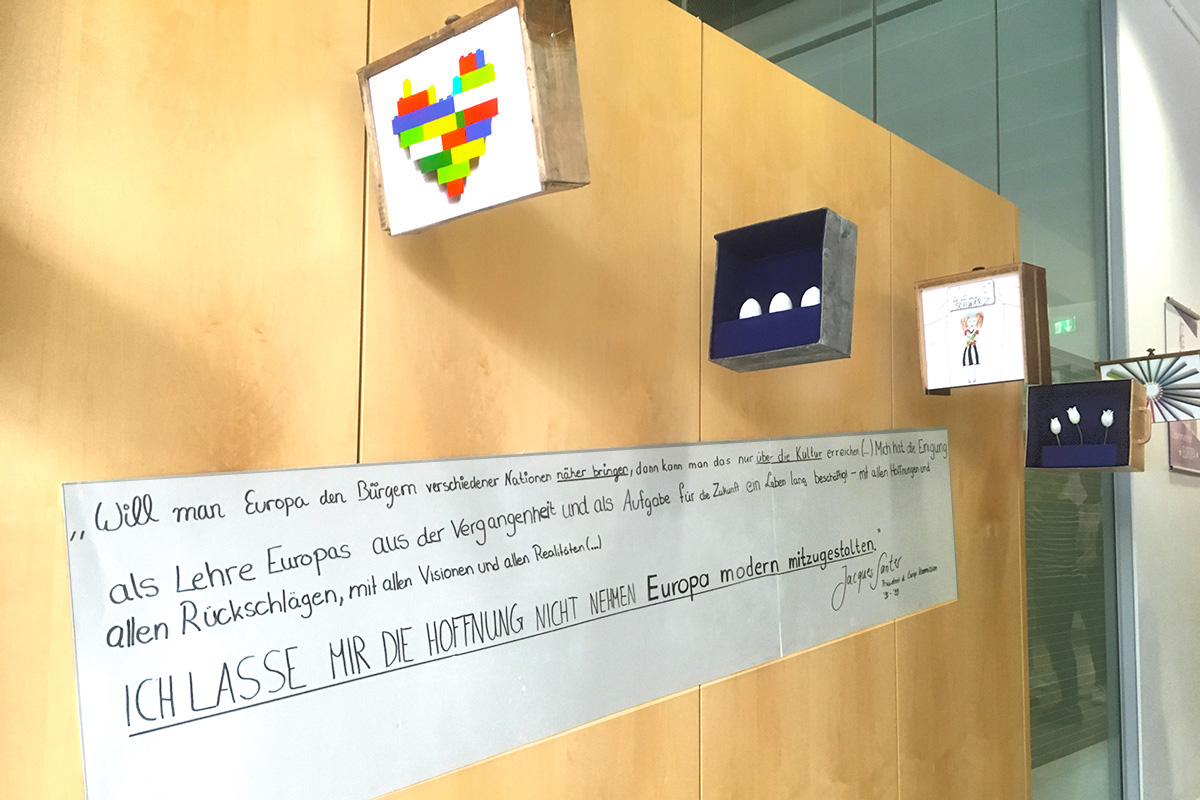 „Will man Europa den Bürgern verschiedener Nationen näher bringen, dann kann man das nur über die Kultur erreichen (...) Mich hat die Einigung
als Lehre Europas aus der Vergangenheit und als Aufgabe für die Zukunft ein Leben lang beschäftigt - mit allen Hoffnungen und
allen Rückschlägen, mit allen Visionen und allen Realitäten (...)
ICH LASSE MIR DIE HOFFNUNG NICHT NEHMEN Europa modern mitzugestalten."
Jacques Santer
Präsident d. Europ. Kommission
'95 - '99